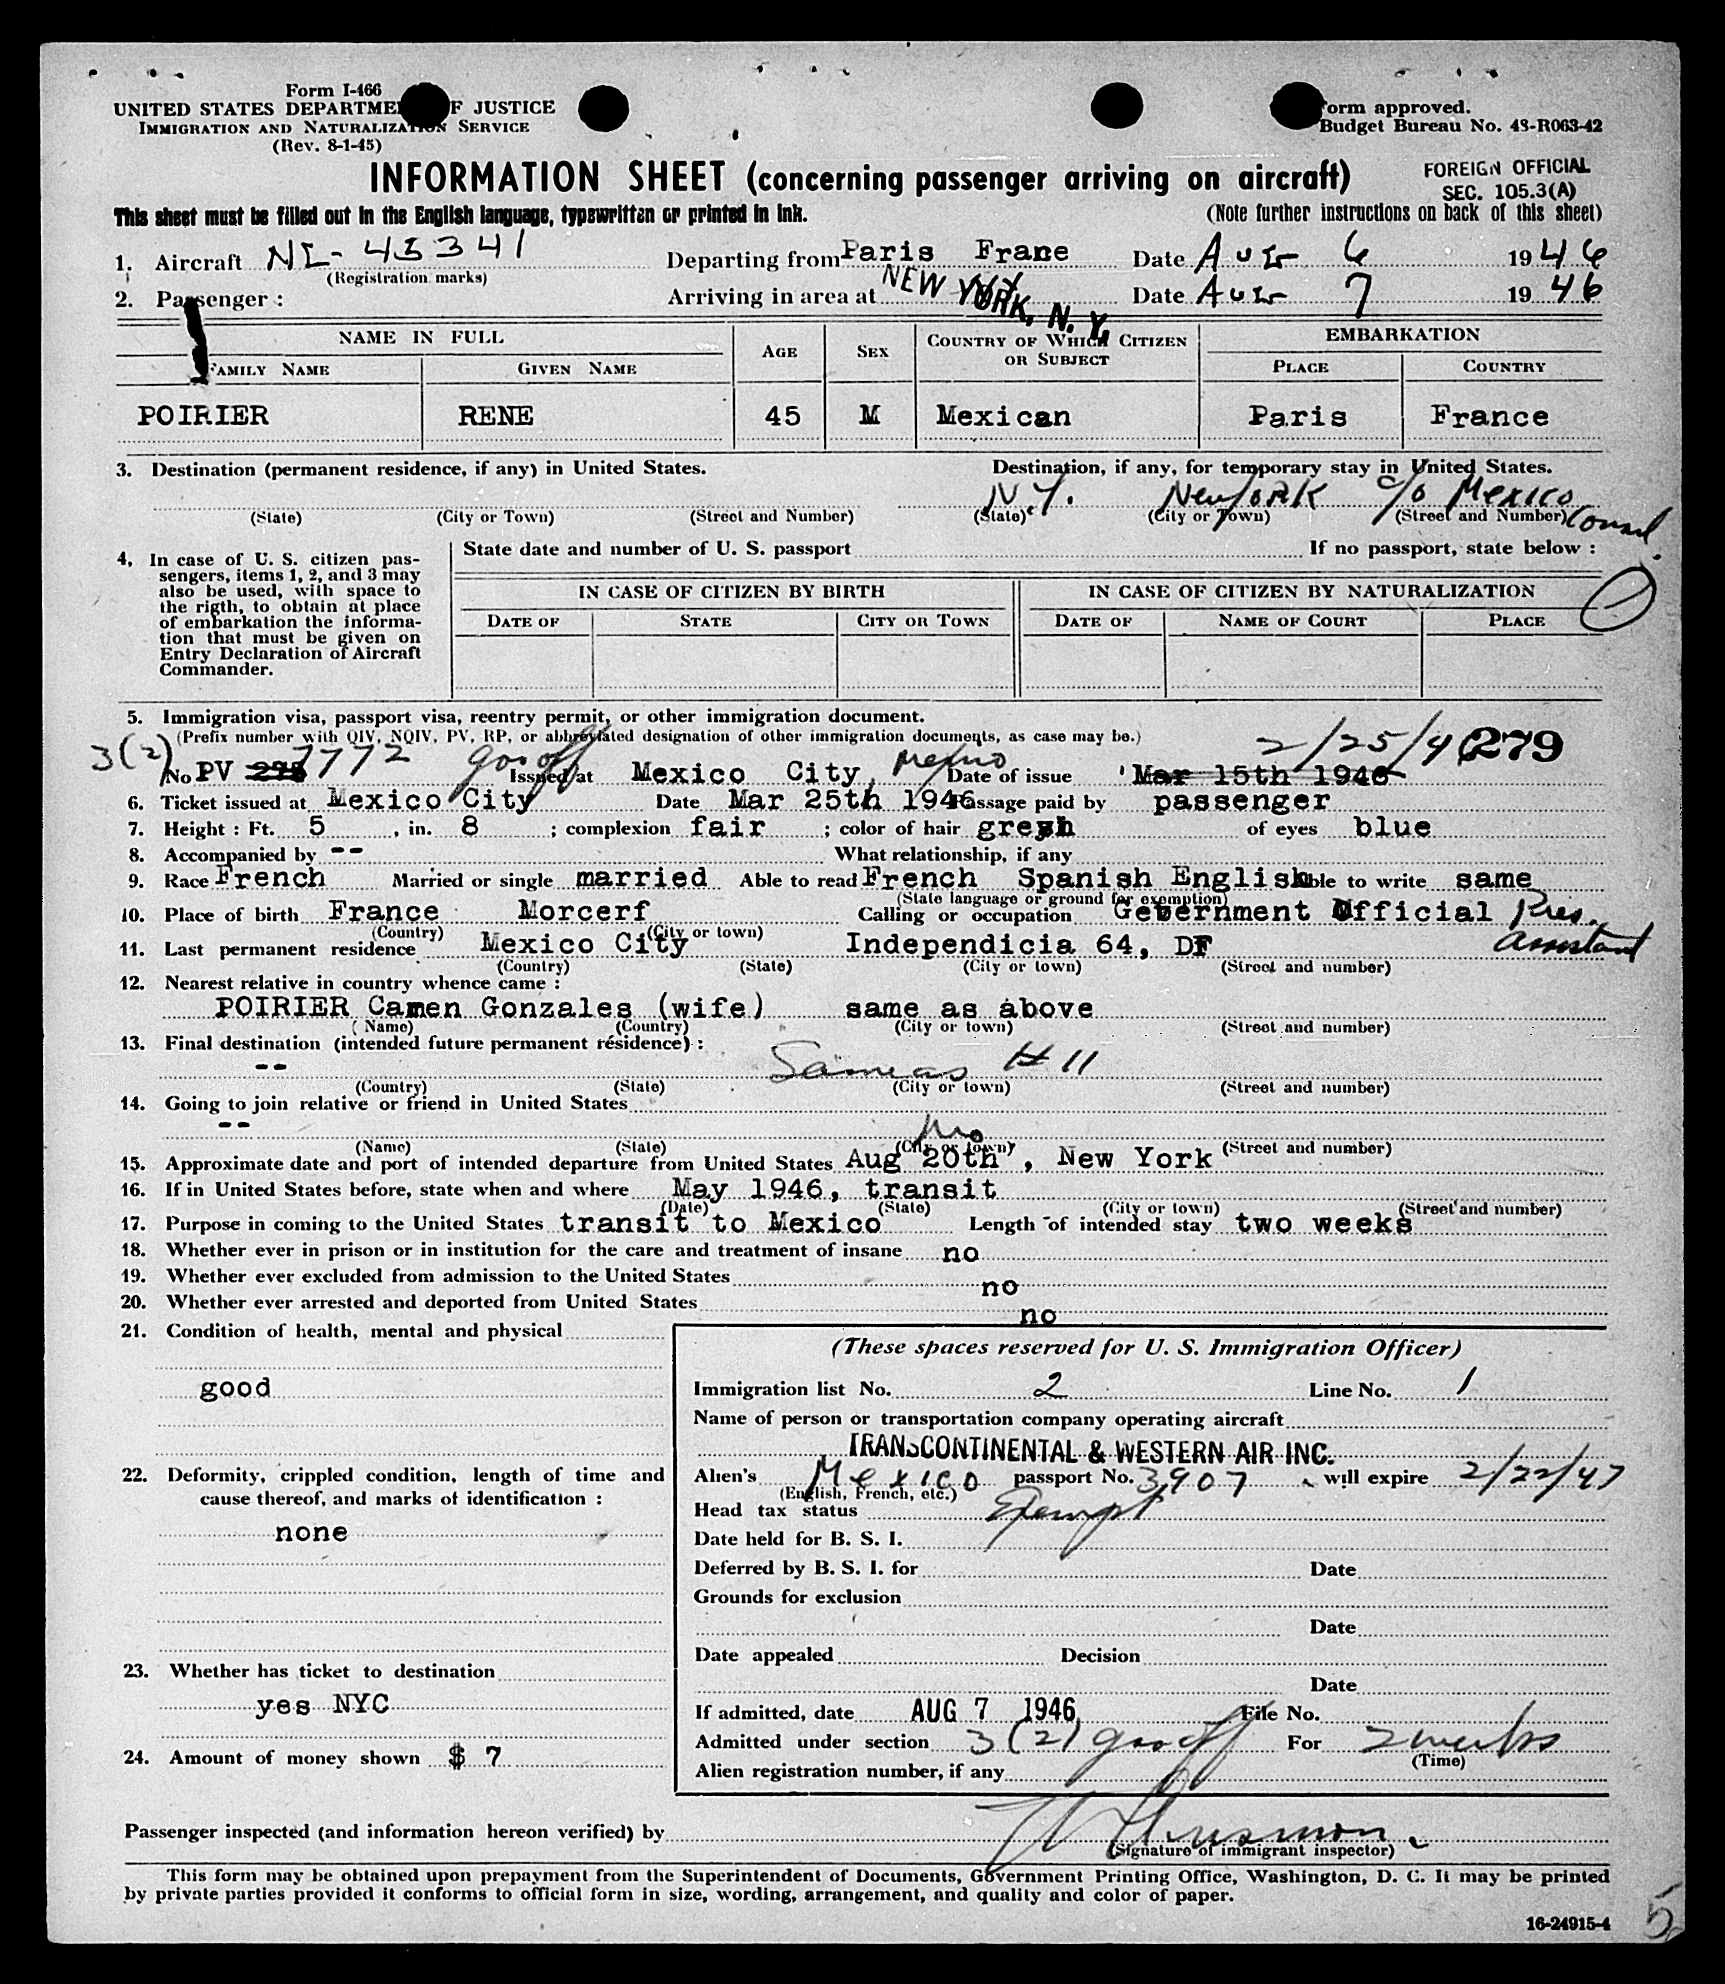 Form I-466
UNITED STATES DEPARTMENT OF JUSTICE
IMMIGRATION AND NATURALIZATION SERVICE
(Rev. 8-1-45)
Form approved.
Budget Bureau No. 43-R063-42
INFORMATION SHEET (concerning passenger arriving on aircraft)
FOREIGN OFFICIAL
SEC. 105.3(A)
This sheet must be filled out in the English language, typewritten or printed in ink.
(Note further instructions on back of this sheet)
1. Aircraft 45341 Departing from Paris Frane Date Aug 6 1946
(Registration marks)
2. Passenger : Arriving in area at NEW YORK, N. Y. Date Aug 7 1946
NAME IN FULL AGE SEX COUNTRY OF WHICH CITIZEN OR SUBJECT EMBARKATION
FAMILY NAME GIVEN NAME PLACE COUNTRY
POIRIER RENE 45 M Mexican Paris France
3. Destination (permanent residence, if any) in United States. Destination, if any, for temporary stay in United States.
N.Y. New York c/o Mexico Consul.
(State) (City or Town) (Street and Number) (State) (City or Town) (Street and Number)
4. In case of U. S. citizen pas-
sengers, items 1, 2, and 3 may
also be used, with space to
the rigth, to obtain at place
of embarkation the informa-
tion that must be given on
Entry Declaration of Aircraft
Commander.
State date and number of U. S. passport If no passport, state below :
IN CASE OF CITIZEN BY BIRTH IN CASE OF CITIZEN BY NATURALIZATION
DATE OF STATE CITY OR TOWN DATE OF NAME OF COURT PLACE
5. Immigration visa, passport visa, reentry permit, or other immigration document.
(Prefix number with QIV, NQIV, PV, RP, or abbreviated designation of other immigration documents, as case may be.)
2/25/46 279
3(2) No PV 7772 Issued at Mexico City, Mexico Date of issue Mar 15th 1946
6. Ticket issued at Mexico City Date Mar 25th 1946 Passage paid by passenger
7. Height : Ft. 5, in. 8 ; complexion fair ; color of hair greysh of eyes blue
8. Accompanied by -- What relationship, if any
9. Race French Married or single married Able to read French Spanish English Able to write same
(State language or ground for exemption)
10. Place of birth France Morcerf Calling or occupation Government Official Pres. Assistant
(Country) (City or town)
11. Last permanent residence Mexico City Independicia 64, DF
(Country) (State) (City or town) (Street and number)
12. Nearest relative in country whence came :
POIRIER Camen Gonzales (wife) same as above
(Name) (Country) (City or town) (Street and number)
13. Final destination (intended future permanent residence) :
-- Same as # 11
(Country) (State) (City or town) (Street and number)
14. Going to join relative or friend in United States
--
(Name) (State) (City or town) (Street and number)
15. Approximate date and port of intended departure from United States Aug 20th , New York
16. If in United States before, state when and where May 1946, transit
(Date) (State) (City or town) (Street and number)
17. Purpose in coming to the United States transit to Mexico Length of intended stay two weeks
18. Whether ever in prison or in institution for the care and treatment of insane no
19. Whether ever excluded from admission to the United States no
20. Whether ever arrested and deported from United States no
21. Condition of health, mental and physical
good
22. Deformity, crippled condition, length of time and
cause thereof, and marks of identification :
none
23. Whether has ticket to destination
yes NYC
24. Amount of money shown $ 7
(These spaces reserved for U. S. Immigration Officer)
Immigration list No. 2 Line No. 1
Name of person or transportation company operating aircraft
TRANSCONTINENTAL & WESTERN AIR INC.
Alien's Mexico passport No. 3907 will expire 2/22/47
(English, French, etc.)
Head tax status Exempt
Date held for B. S. I.
Deferred by B. S. I. for Date
Grounds for exclusion
Date
Date appealed Decision
Date
If admitted, date AUG 7 1946 File No.
Admitted under section 3(2) For 2 weeks
(Time)
Alien registration number, if any
Passenger inspected (and information hereon verified) by
(Signature of immigrant inspector)
This form may be obtained upon prepayment from the Superintendent of Documents, Government Printing Office, Washington, D. C. It may be printed
by private parties provided it conforms to official form in size, wording, arrangement, and quality and color of paper.
16-24915-4
5